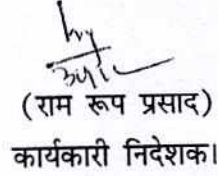 (राम रूप प्रसाद)
कार्यकारी निदेशक।